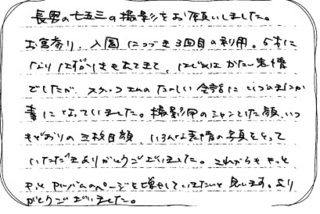 長男の七五三の撮影をお願いしました。
お宮参り、入園につづき3回目の利用。5才に
なり はずかしさもでてきて、はじめは かたい表情
でしたが、スタッフさんの たのしい 会話に いつのまにか
笑に なっていました。撮影用の シャンとした顔、いつ
もどおりの 2枚目顔、いろんな表情の写真をとって
いただき ありがとうございました。これからも やっと
やっと アルバムのページを 増やしていきたいと 思います。あり
がとうございました。